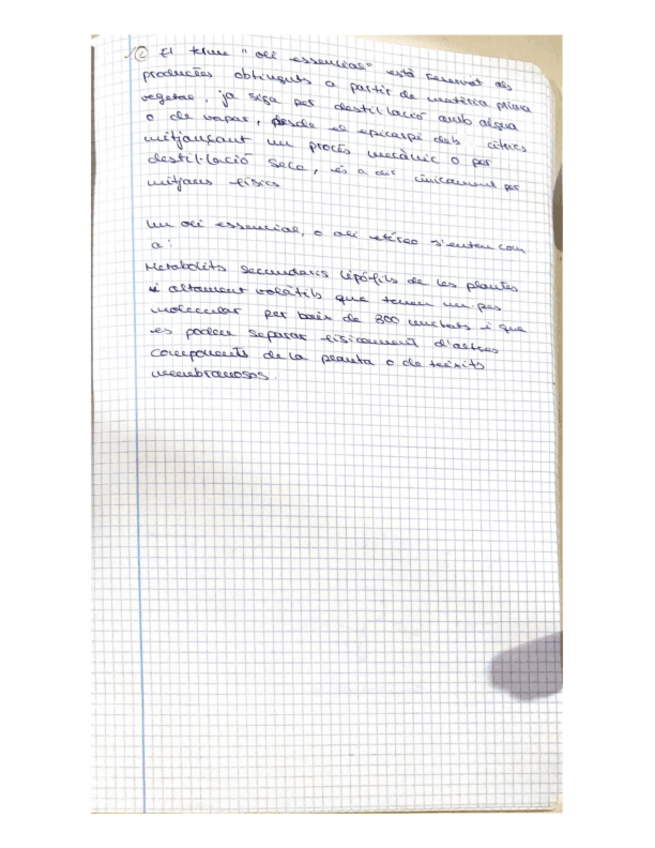 ② El terme "oli essencial" està reservat als
productes obtinguts a partir de matèria prima
vegetal, ja siga per destil·lació amb aigua
o de vapor, desde el epicarpi dels cítrics
mitjançant un procés mecànic o per
destil·lació seca, és a dir únicament per
mitjans físics
Un oli essencial, o oli etéreo s'enten com
a:
Metabolits secundaris lipófils de les plantes
i altament volàtils que tenen un pes
molecular per baix de 300 unitats i que
es poden separar físicament d'altres
components de la planta o de teixits
membranosos.